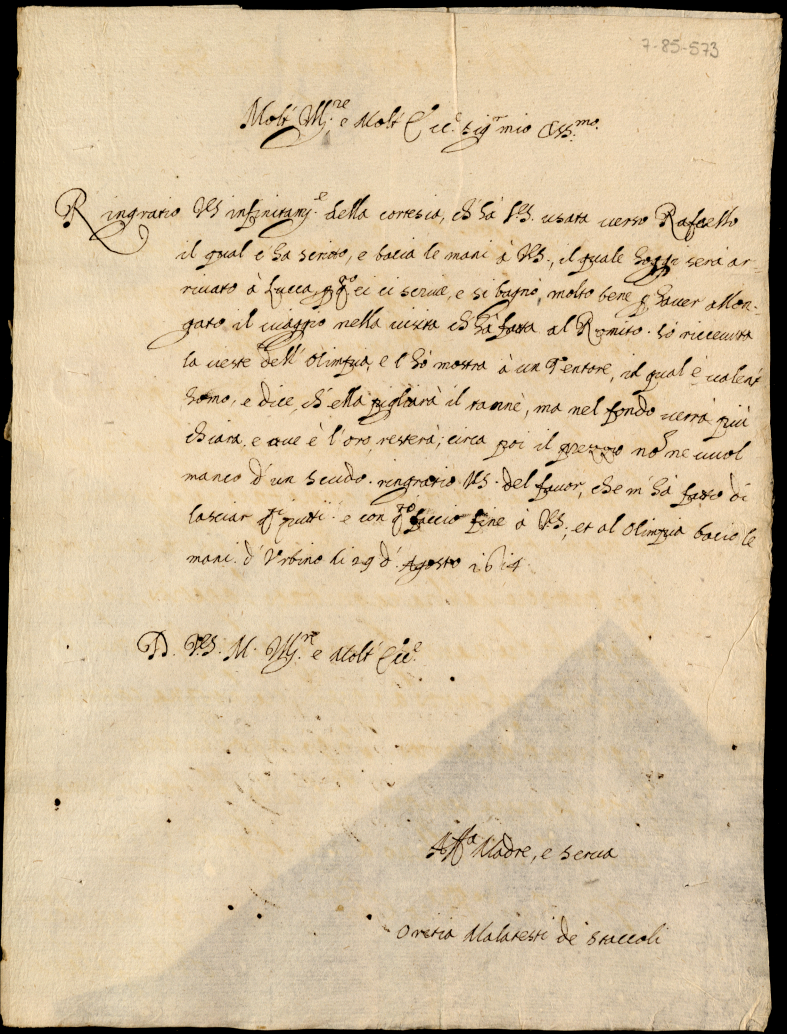 7-85-573
Molt' Ill.re e Molt' Ecc.te Sig.r mio Oss.mo
Ringratio VS infinitam.te della cortesia, ch'hà VS. usata verso Rafaello
il qual c'ha scritto, e bacia le mani à VS., il quale hoggi serà ar-
rivato à Lucca, p q.to ei ci scrive, e si bagnò, molto bene p haver allon-
gato il viaggio nella visita ch'hà fatta al Romito. hò ricevuta
la veste dell' Olimpia, e l'hò mostra à un Tentore, il qual è valent'
homo, e dice, ch'ella pigliarà il tannè, ma nel fondo verrà più
chiara, e ove è l'oro, resterà; circa poi il prezzo nò ne vuol
manco d'un scudo. ringratio VS. del favor, che m'hà fatto di
lasciar q.ti putti. e con q.to faccio fine à VS; et al Olimpia bacio le
mani. d'Urbino li 29 d'Agosto 1614.
D. VS. M. Ill.re e Molt' Ecc.te
Aff.a Madre, e serva
Oretia Malatesti de Staccoli